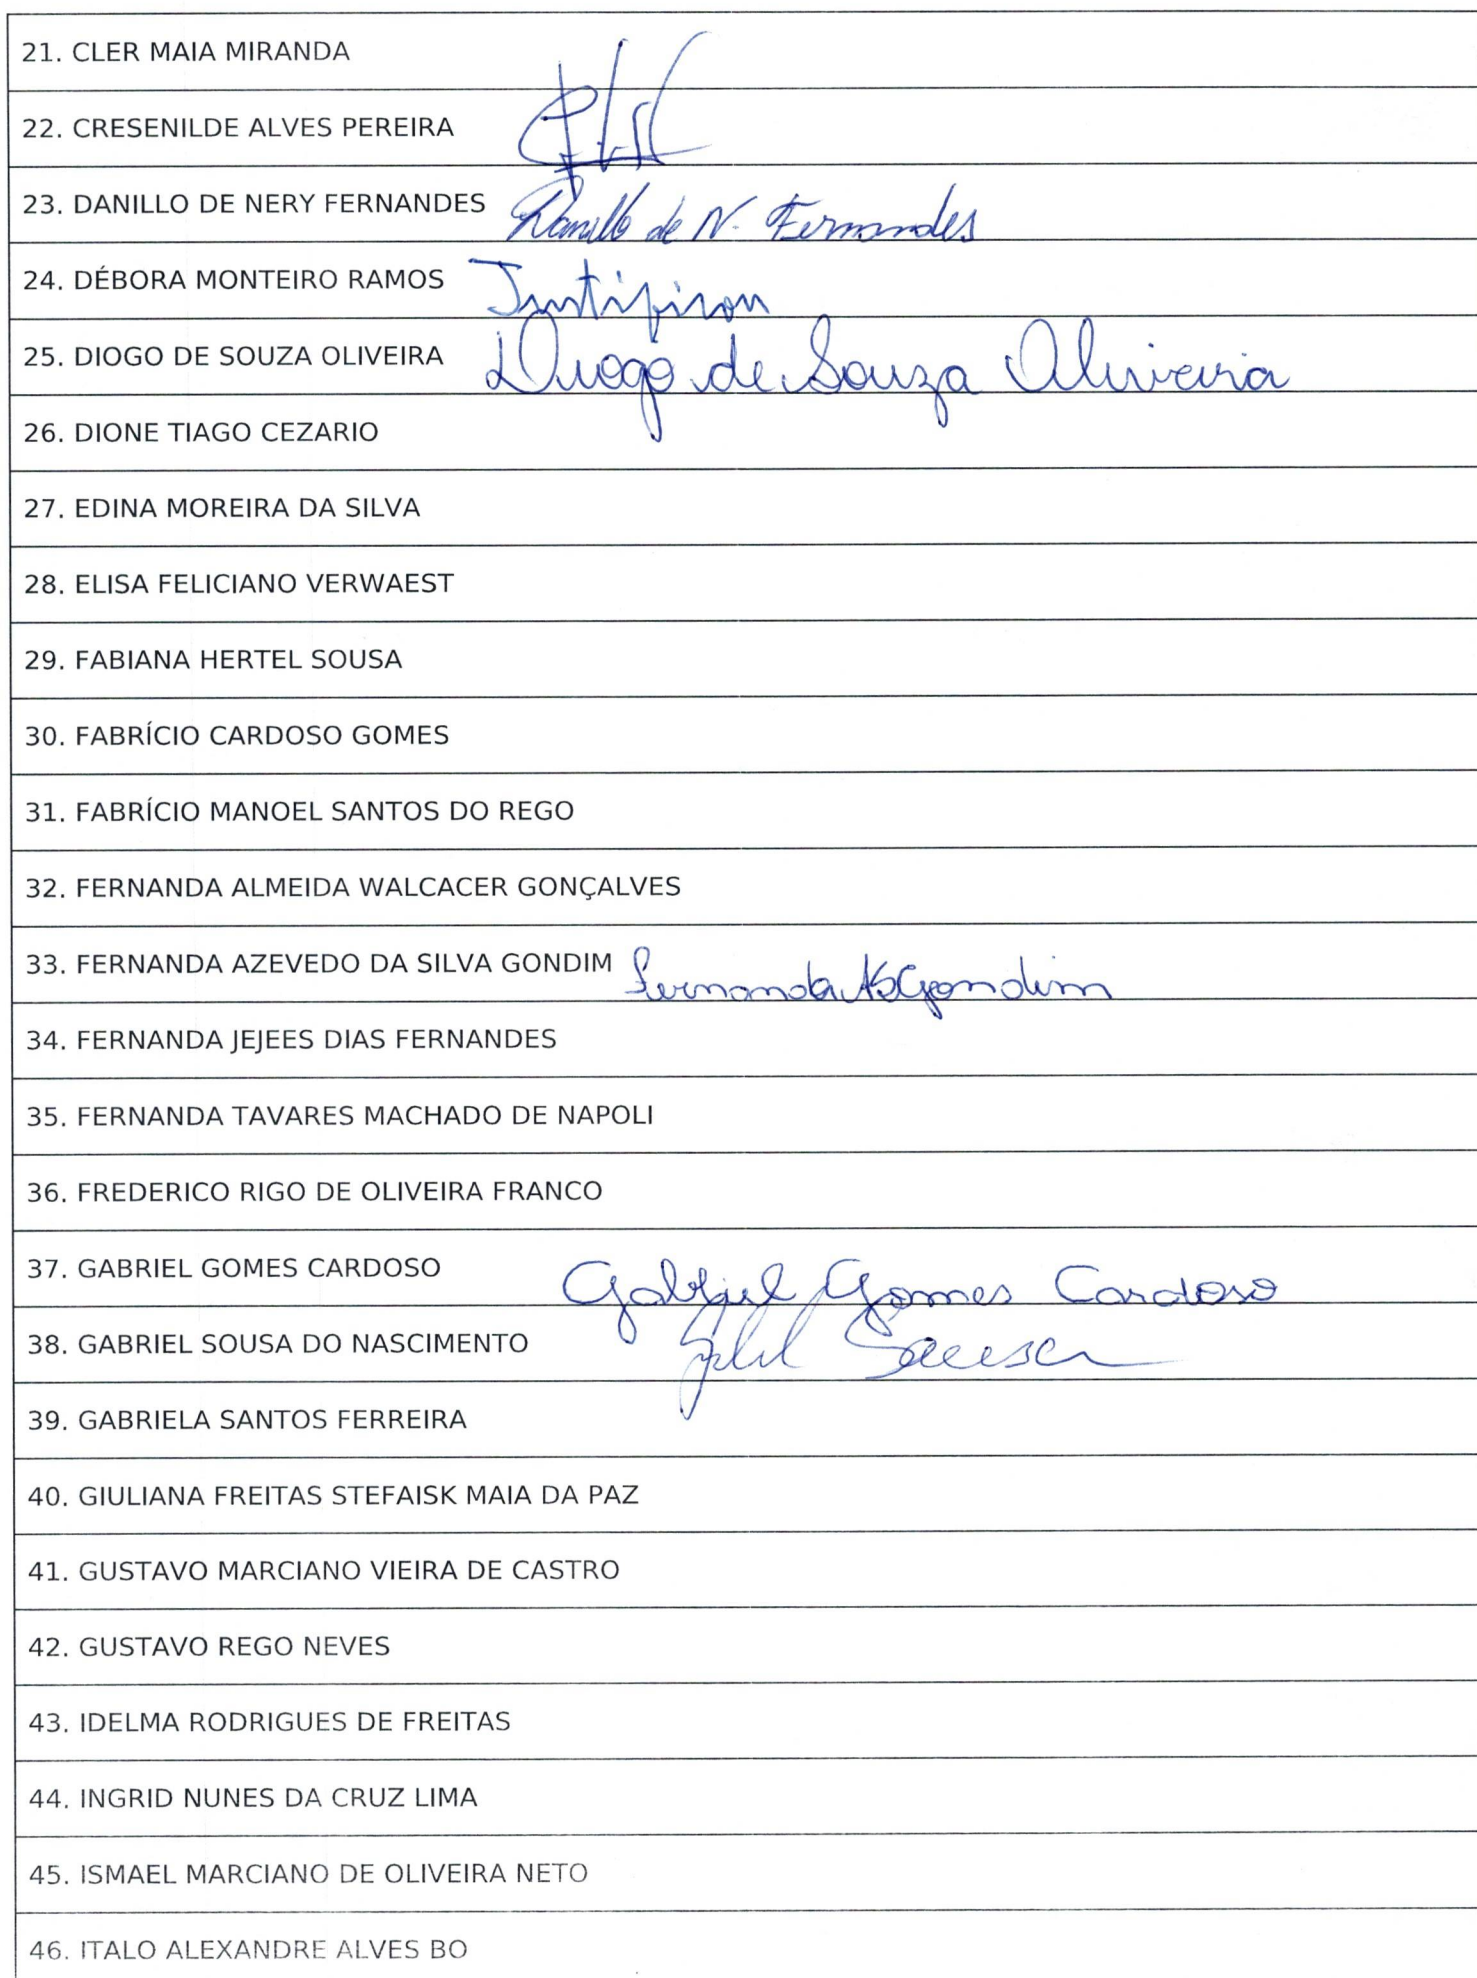 21. CLER MAIA MIRANDA
22. CRESENILDE ALVES PEREIRA
23. DANILLO DE NERY FERNANDES Danillo de N. Fernandes
24. DÉBORA MONTEIRO RAMOS Justificou
25. DIOGO DE SOUZA OLIVEIRA Diogo de Souza Oliveira
26. DIONE TIAGO CEZARIO
27. EDINA MOREIRA DA SILVA
28. ELISA FELICIANO VERWAEST
29. FABIANA HERTEL SOUSA
30. FABRÍCIO CARDOSO GOMES
31. FABRÍCIO MANOEL SANTOS DO REGO
32. FERNANDA ALMEIDA WALCACER GONÇALVES
33. FERNANDA AZEVEDO DA SILVA GONDIM Fernanda AS Gondim
34. FERNANDA JEJEES DIAS FERNANDES
35. FERNANDA TAVARES MACHADO DE NAPOLI
36. FREDERICO RIGO DE OLIVEIRA FRANCO
37. GABRIEL GOMES CARDOSO Gabriel Gomes Cardoso
38. GABRIEL SOUSA DO NASCIMENTO Sousa
39. GABRIELA SANTOS FERREIRA
40. GIULIANA FREITAS STEFAISK MAIA DA PAZ
41. GUSTAVO MARCIANO VIEIRA DE CASTRO
42. GUSTAVO REGO NEVES
43. IDELMA RODRIGUES DE FREITAS
44. INGRID NUNES DA CRUZ LIMA
45. ISMAEL MARCIANO DE OLIVEIRA NETO
46. ITALO ALEXANDRE ALVES BO